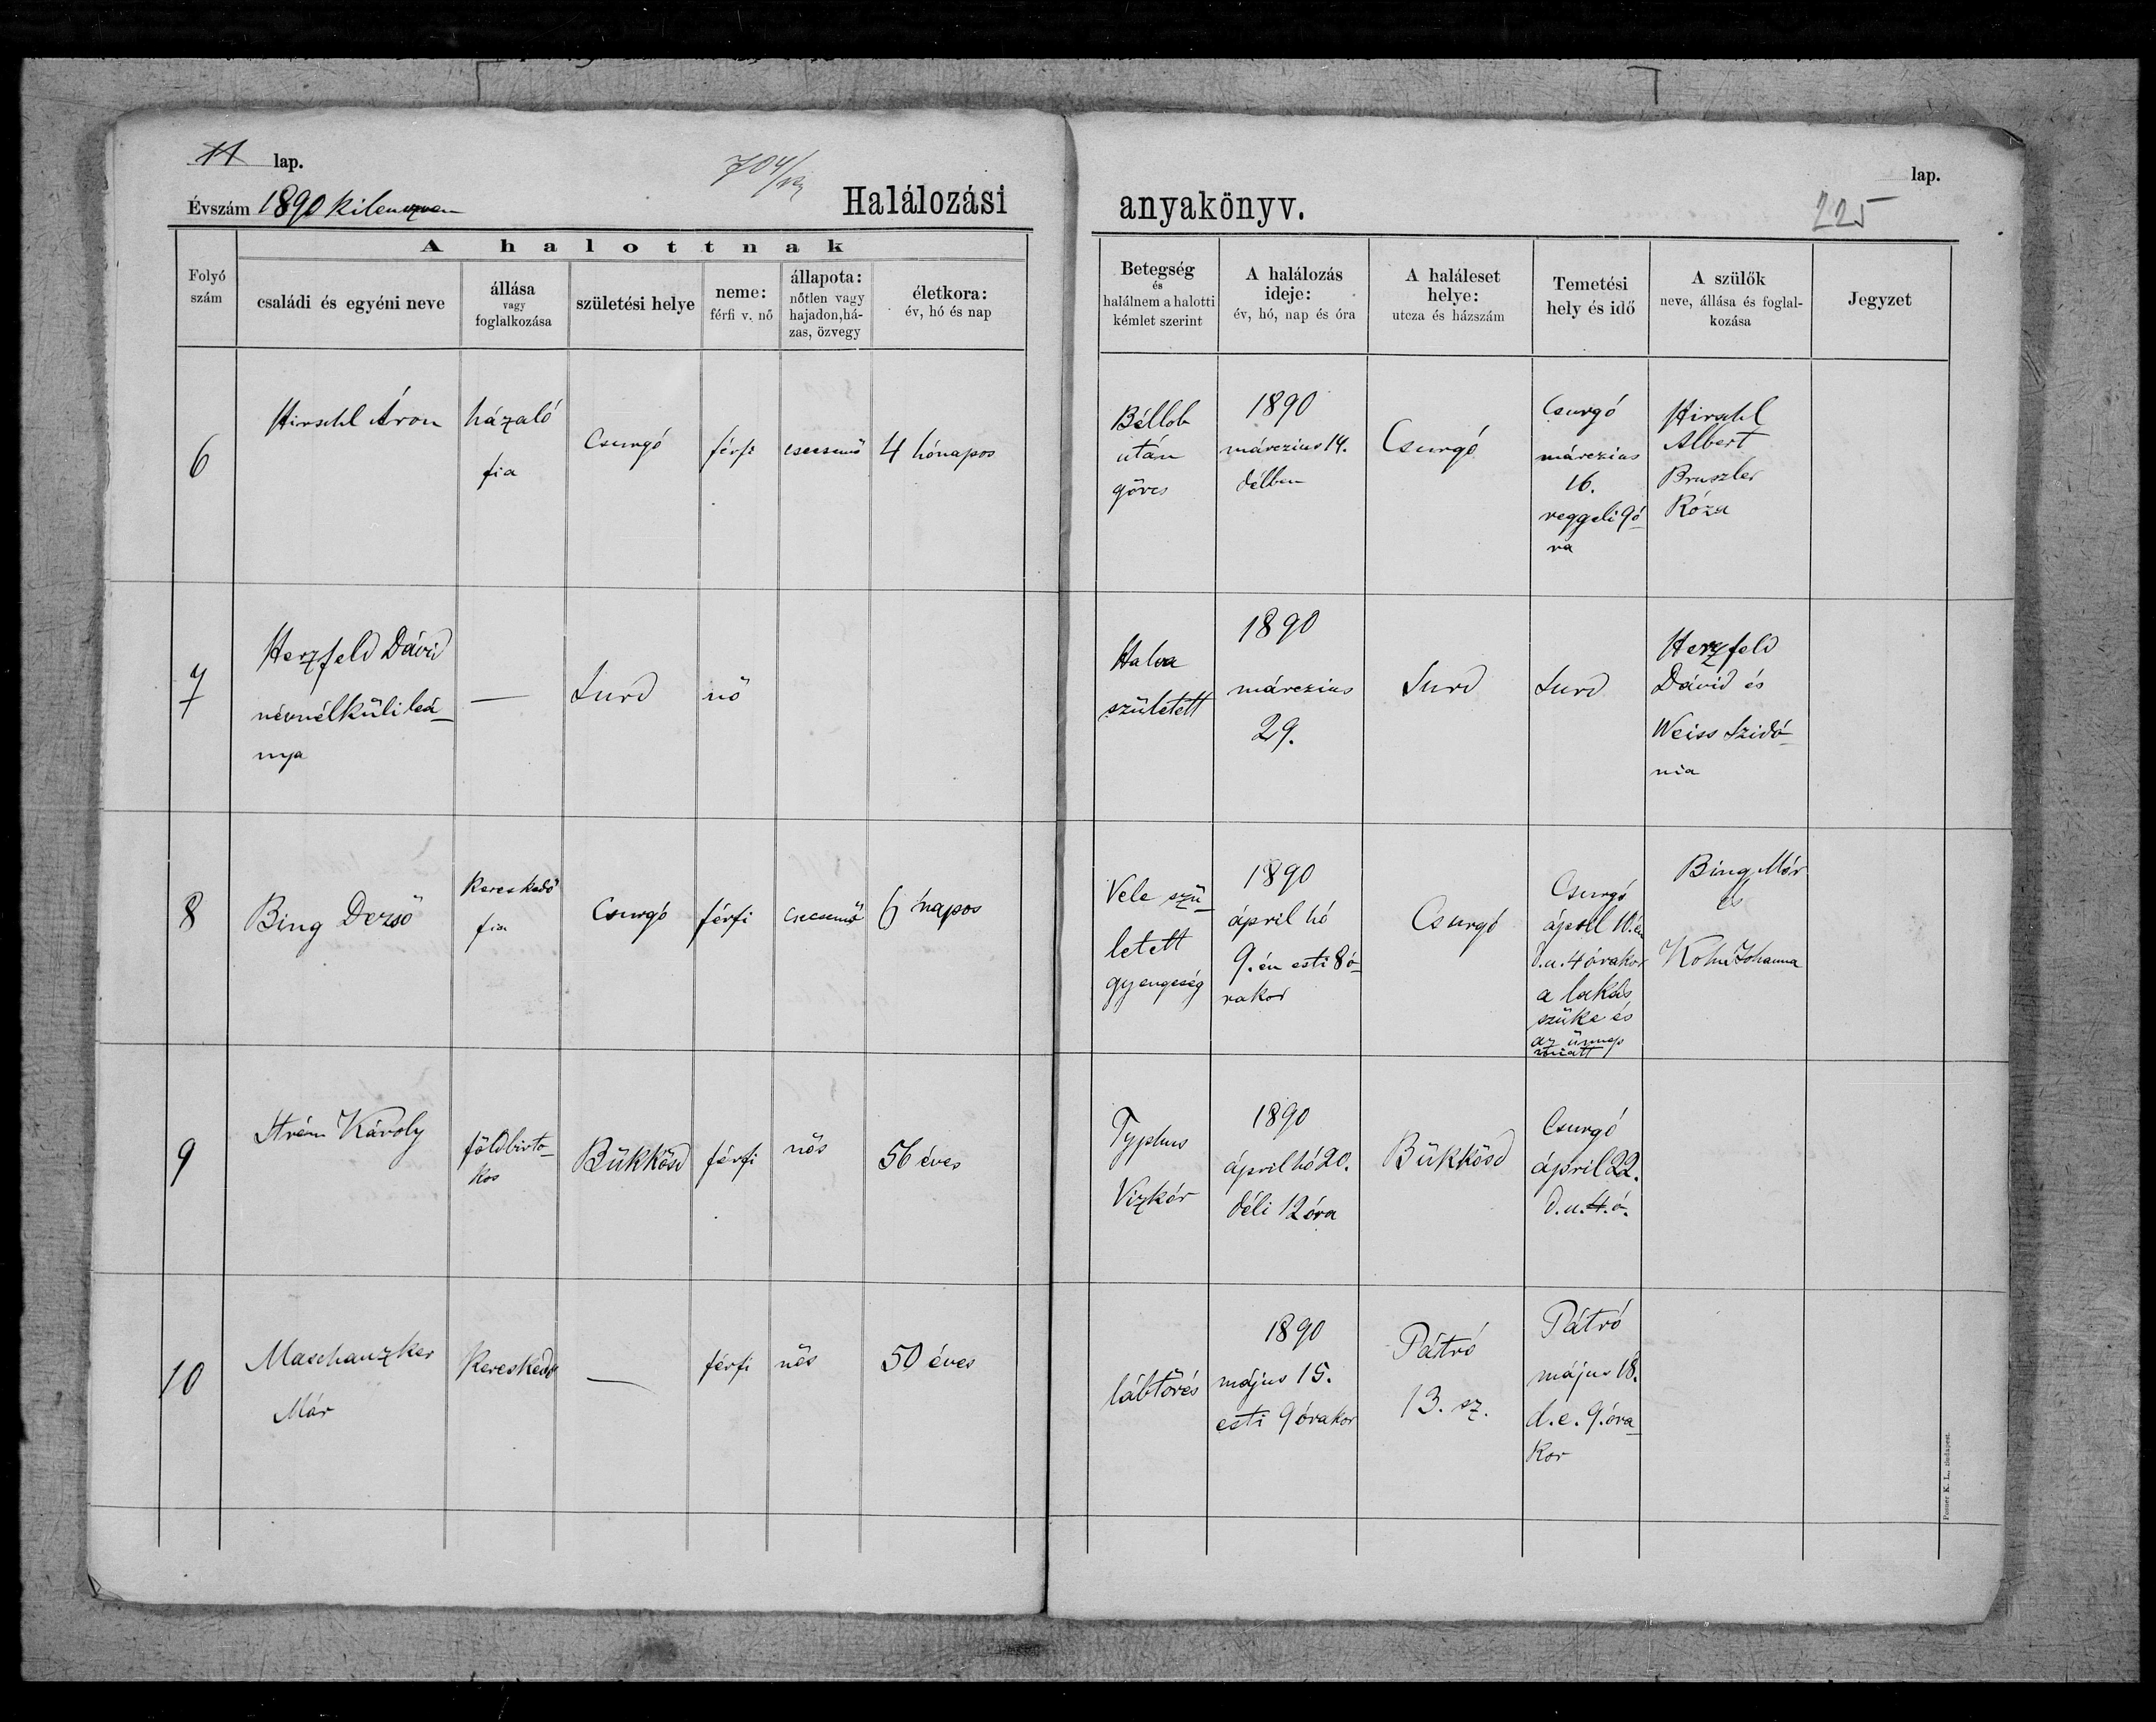 11 lap.
704/
Évszám 1890 kilenczven
Halálozási anyakönyv.
lap.
225
A halottnak
Folyó szám
családi és egyéni neve
állása vagy foglalkozása
születési helye
neme: férfi v. nő
állapota: nőtlen vagy hajadon, házas, özvegy
életkora: év, hó és nap
Betegség és halálnem a halotti kémlet szerint
A halálozás ideje: év, hó, nap és óra
A haláleset helye: utcza és házszám
Temetési hely és idő
A szülők neve, állása és foglalkozása
Jegyzet
6
Hirschl Áron
házaló
fia
Csurgó
férfi
csecsemő
4 hónapos
Béllob
után
görcs
1890
márczius 14.
délben
Csurgó
Csurgó
márczius
16.
reggeli 9 ó-
ra
Hirschl
Albert
Bruszler
Róza
7
Herzfeld Dávid
névnélküli leá-
nya
—
Surd
nő
Halva
született
1890
márczius
29.
Surd
Surd
Herzfeld
Dávid és
Weiss Szidó-
nia
8
Bing Dezső
Kereskedő
fia
Csurgó
férfi
csecsemő
6 napos
Vele szü-
letett
gyengeség
1890
ápril hó
9.én esti 8 ó-
rakor
Csurgó
Csurgó
ápril 10.én
d.u. 4 órakor
a lakás
szüke és
az ünnep
miatt
Bing Mór
és
Kohn Johanna
9
Strém Károly
földbirto-
kos
Bükkösd
férfi
nős
56 éves
Typhus
Vizkór
1890
ápril hó 20.
déli 12 óra
Bükkösd
Csurgó
ápril 22.
d.u. 4. ó.
10
Maschanzker
Mór
Kereskedő
—
férfi
nős
50 éves
lábtörés
1890
május 15.
esti 9 órakor
Pátró
13. sz.
Pátró
május 18.
d.e. 9. óra-
kor
Posner K. L., Budapest.